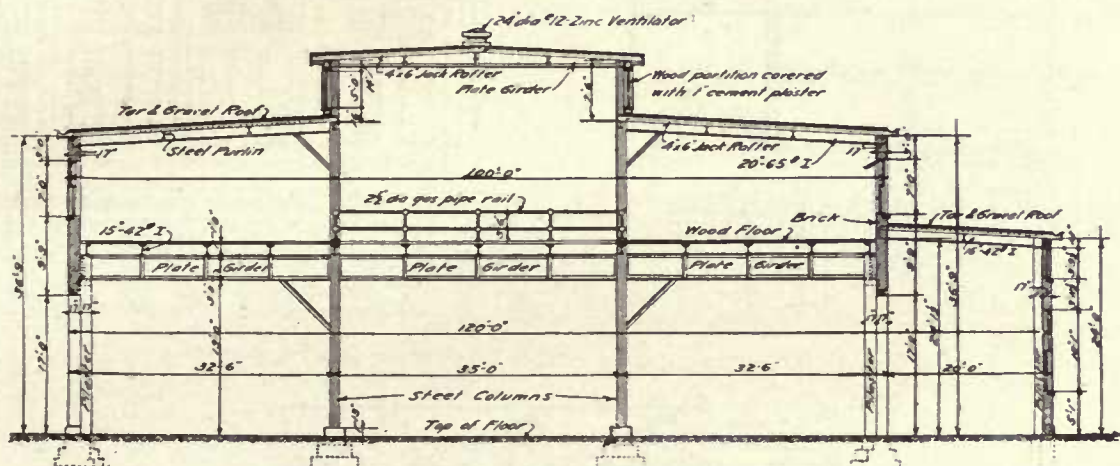 24" dia #12-Zinc Ventilator
4x6 Jack Rafter
Plate Girder
Wood partition covered
with 1" cement plaster
Tar & Gravel Roof
Steel Purlin
17"
4x6 Jack Rafter
20"-65# I
17"
100'-0"
2½ dia gas pipe rail
Brick
Tar & Gravel Roof
15"-42# I
Wood Floor
15"-42# I
Plate Girder
Plate Girder
Plate Girder
17"
120'-0"
32'-6"
35'-0"
32'-6"
20'-0"
17'-0"
17'-0"
36'-0"
24'-0"
Pilaster
Pilaster
Pilaster
Steel Columns
Top of Floor